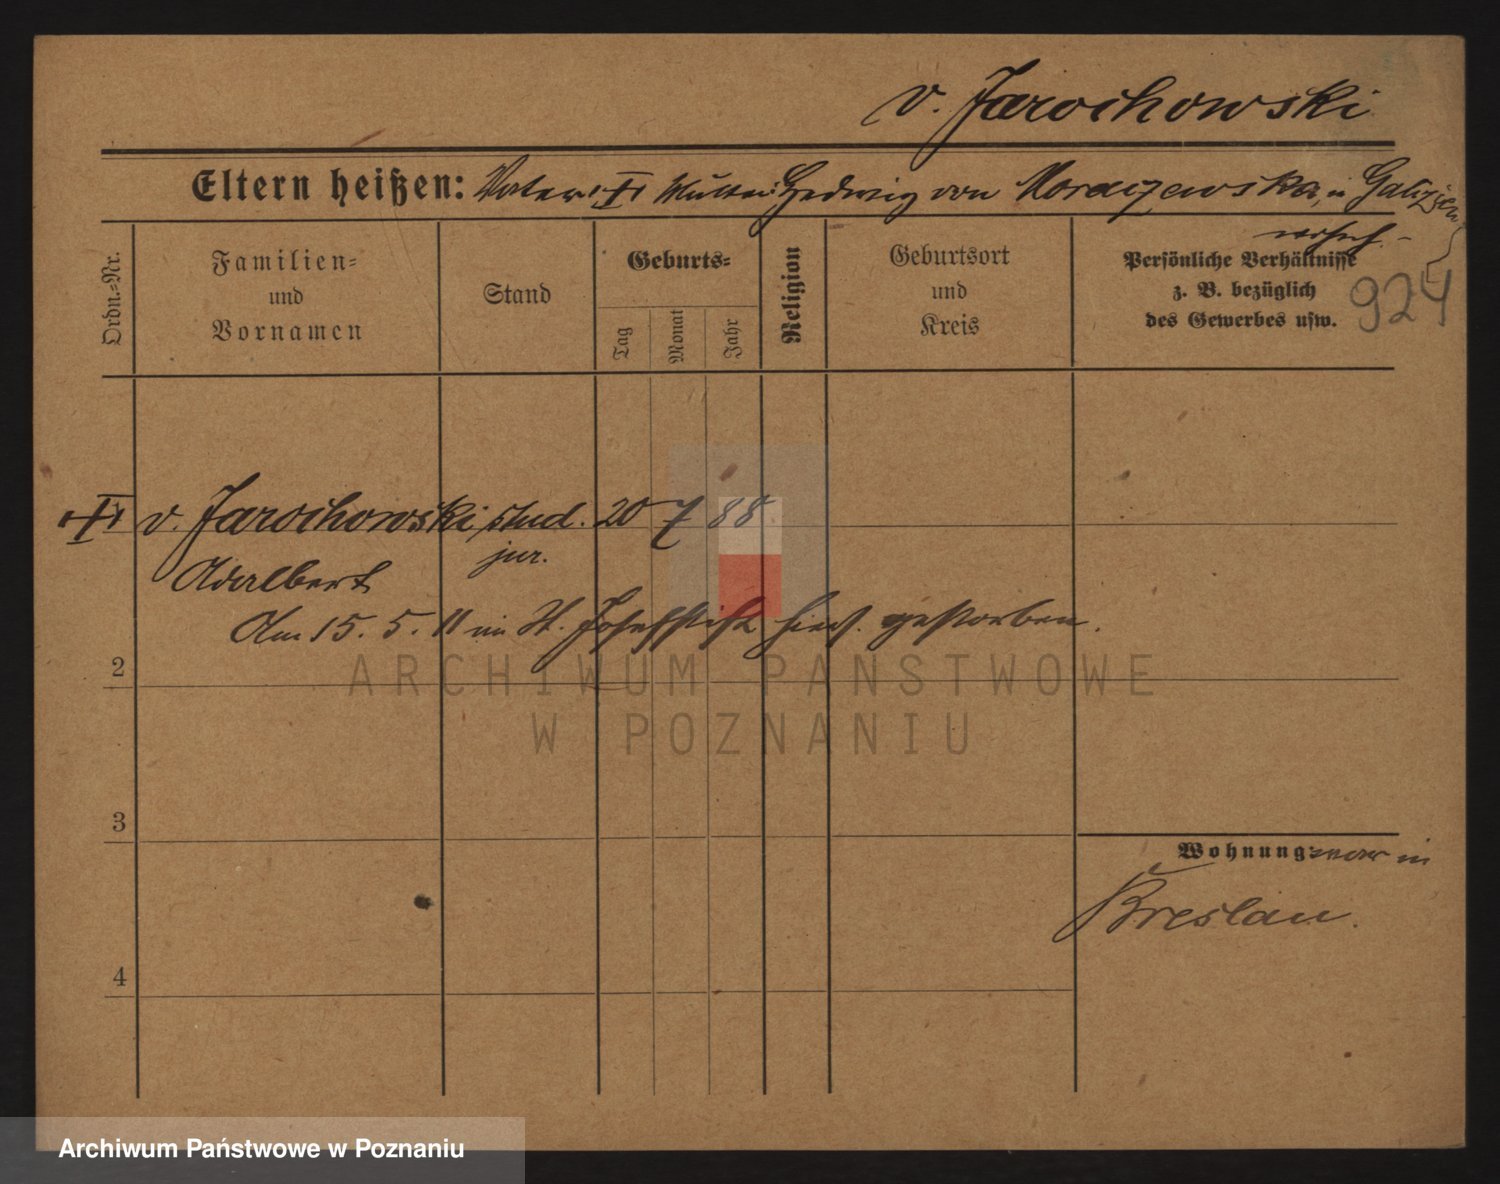 v. Jarochowski
Eltern heißen: Vater: † Mutter: Hedwig von Moraczewska, in Galizien
wohnh.
Ordn.-Nr.
Familien-
und
Vornamen
Stand
Geburts-
Tag
Monat
Jahr
Religion
Geburtsort
und
Kreis
Persönliche Verhältnisse
z. B. bezüglich
des Gewerbes usw.
924
† v. Jarochowski stud. 20 7 88
jur.
Adalbert
Am 15. 5. 11 im St. Josefstift hier. gestorben.
2
ARCHIWUM PAŃSTWOWE
W POZNANIU
3
Wohnung: war in
Breslau.
4
Archiwum Państwowe w Poznaniu